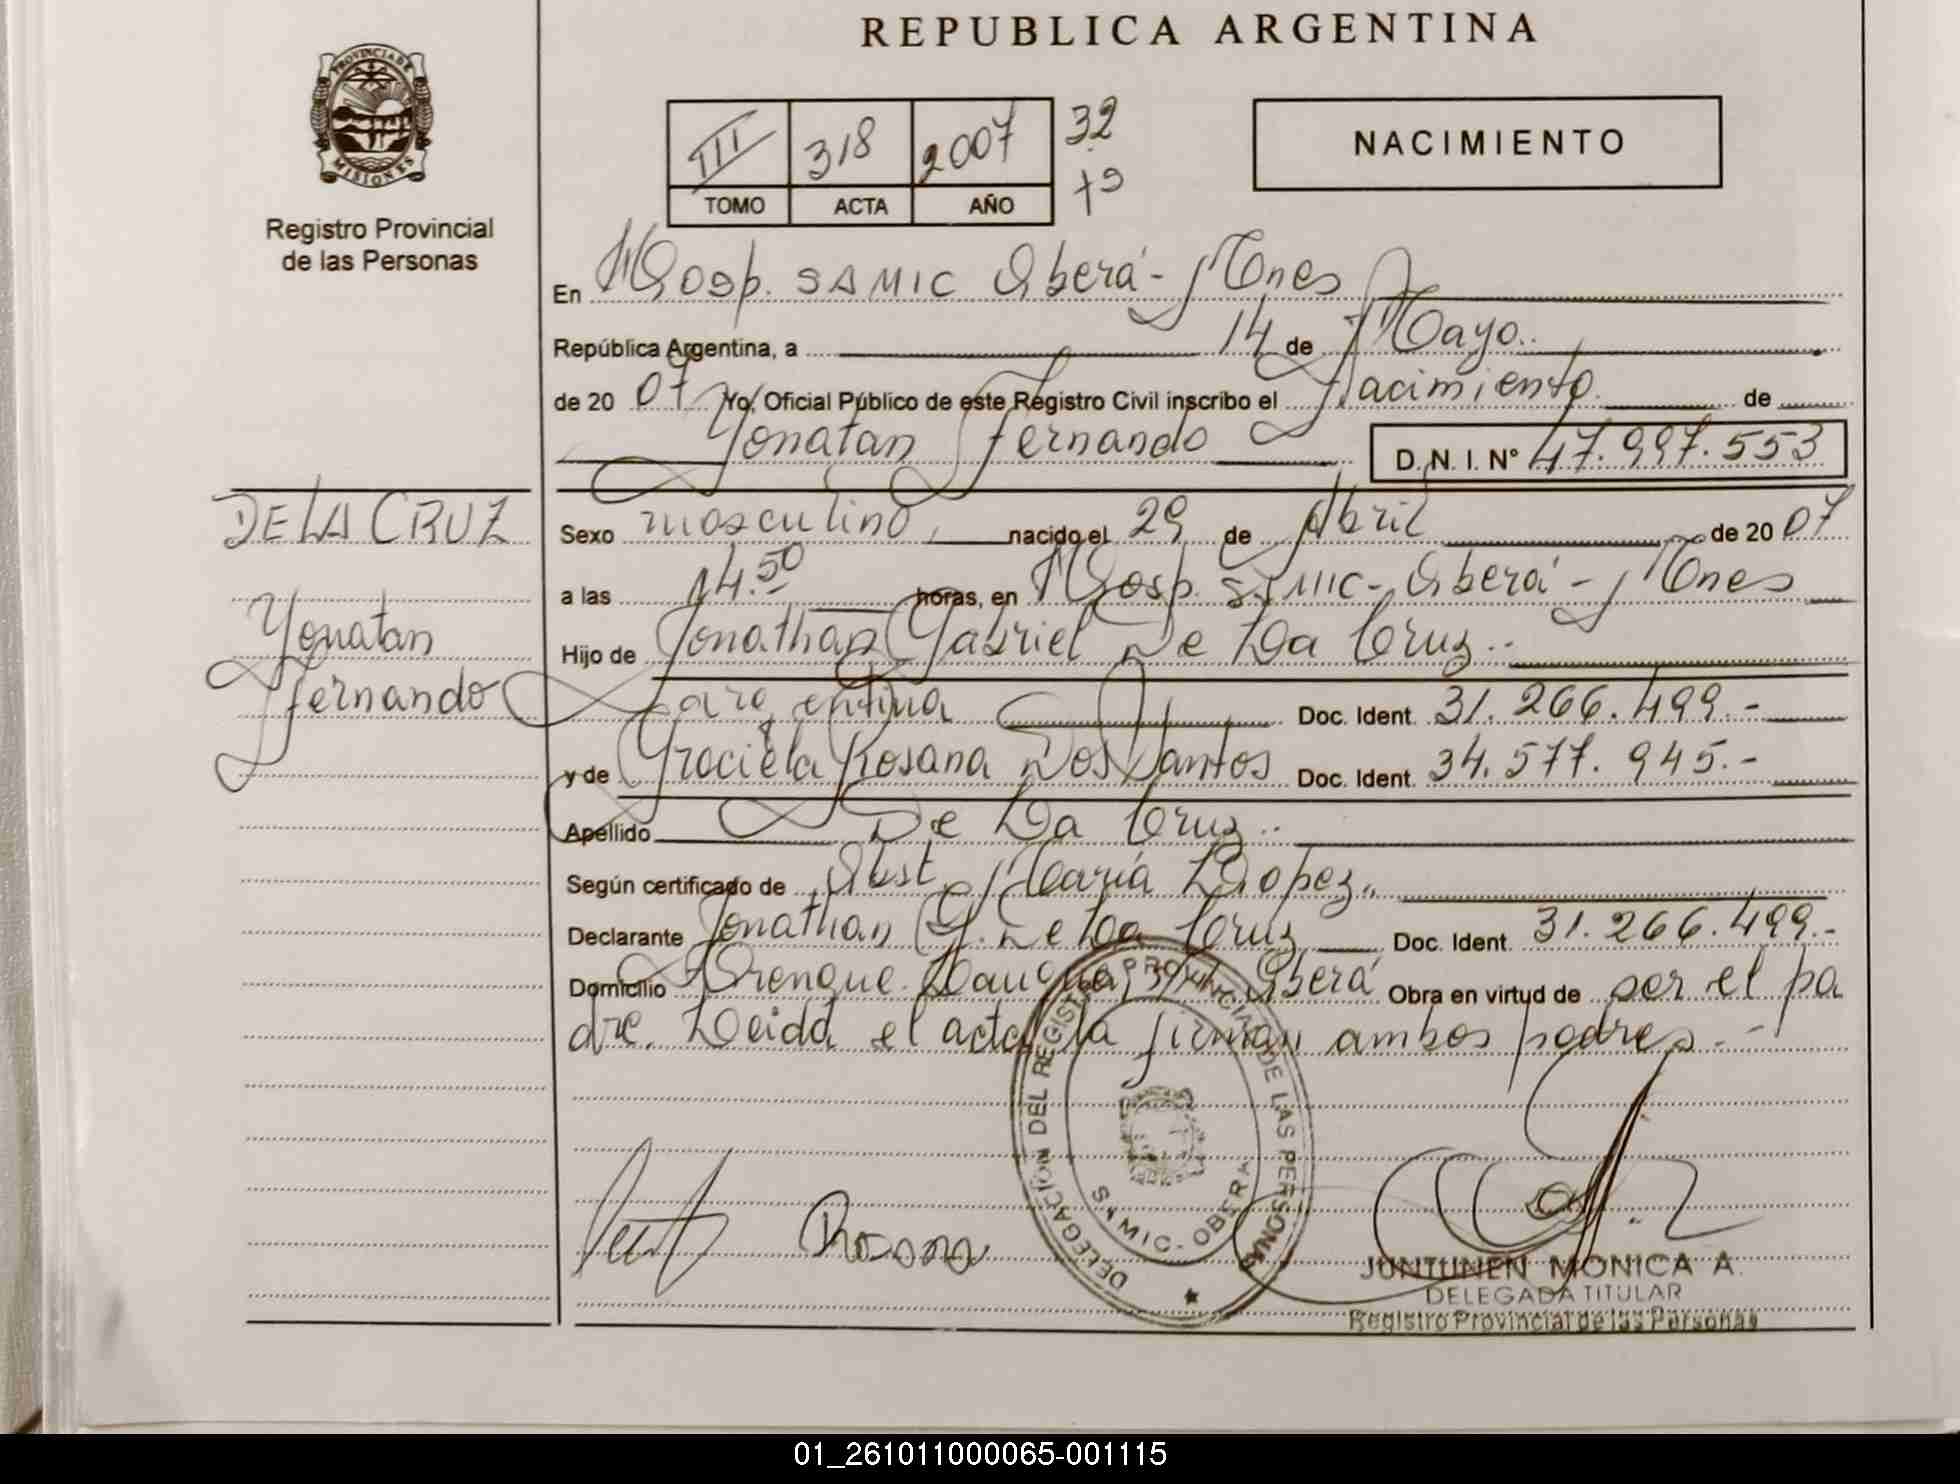 REPUBLICA ARGENTINA
PROVINCIA DE
MISIONES
Registro Provincial
de las Personas
III 318 2007 32
TOMO ACTA AÑO
NACIMIENTO
En Hosp. SAMIC Oberá - Mnes
República Argentina, a 14 de Mayo
de 20 07 Yo, Oficial Público de este Registro Civil inscribo el Nacimiento de
Yonatan Fernando D. N. I. N° 47.997.553
DE LA CRUZ
Yonatan
Fernando
Sexo masculino, nacido el 29 de Abril de 20 07
a las 14.50 horas, en Hosp. SAMIC - Oberá - Mnes
Hijo de Jonathan Gabriel De La Cruz
argentina Doc. Ident. 31.266.499.-
y de Graciela Rosana Dos Santos Doc. Ident. 34.577.945.-
Apellido De La Cruz
Según certificado de Obst. María Lopez
Declarante Jonathan G. De La Cruz Doc. Ident. 31.266.499.-
Domicilio Oberá Obra en virtud de ser el pa
dre. Leida el acta la firman ambos padres.-
DELEGACIÓN DEL REGISTRO PROVINCIAL DE LAS PERSONAS
SAMIC - OBERA
Rosana
JUNTUNEN MONICA A.
DELEGADA TITULAR
Registro Provincial de las Personas
01_261011000065-001115